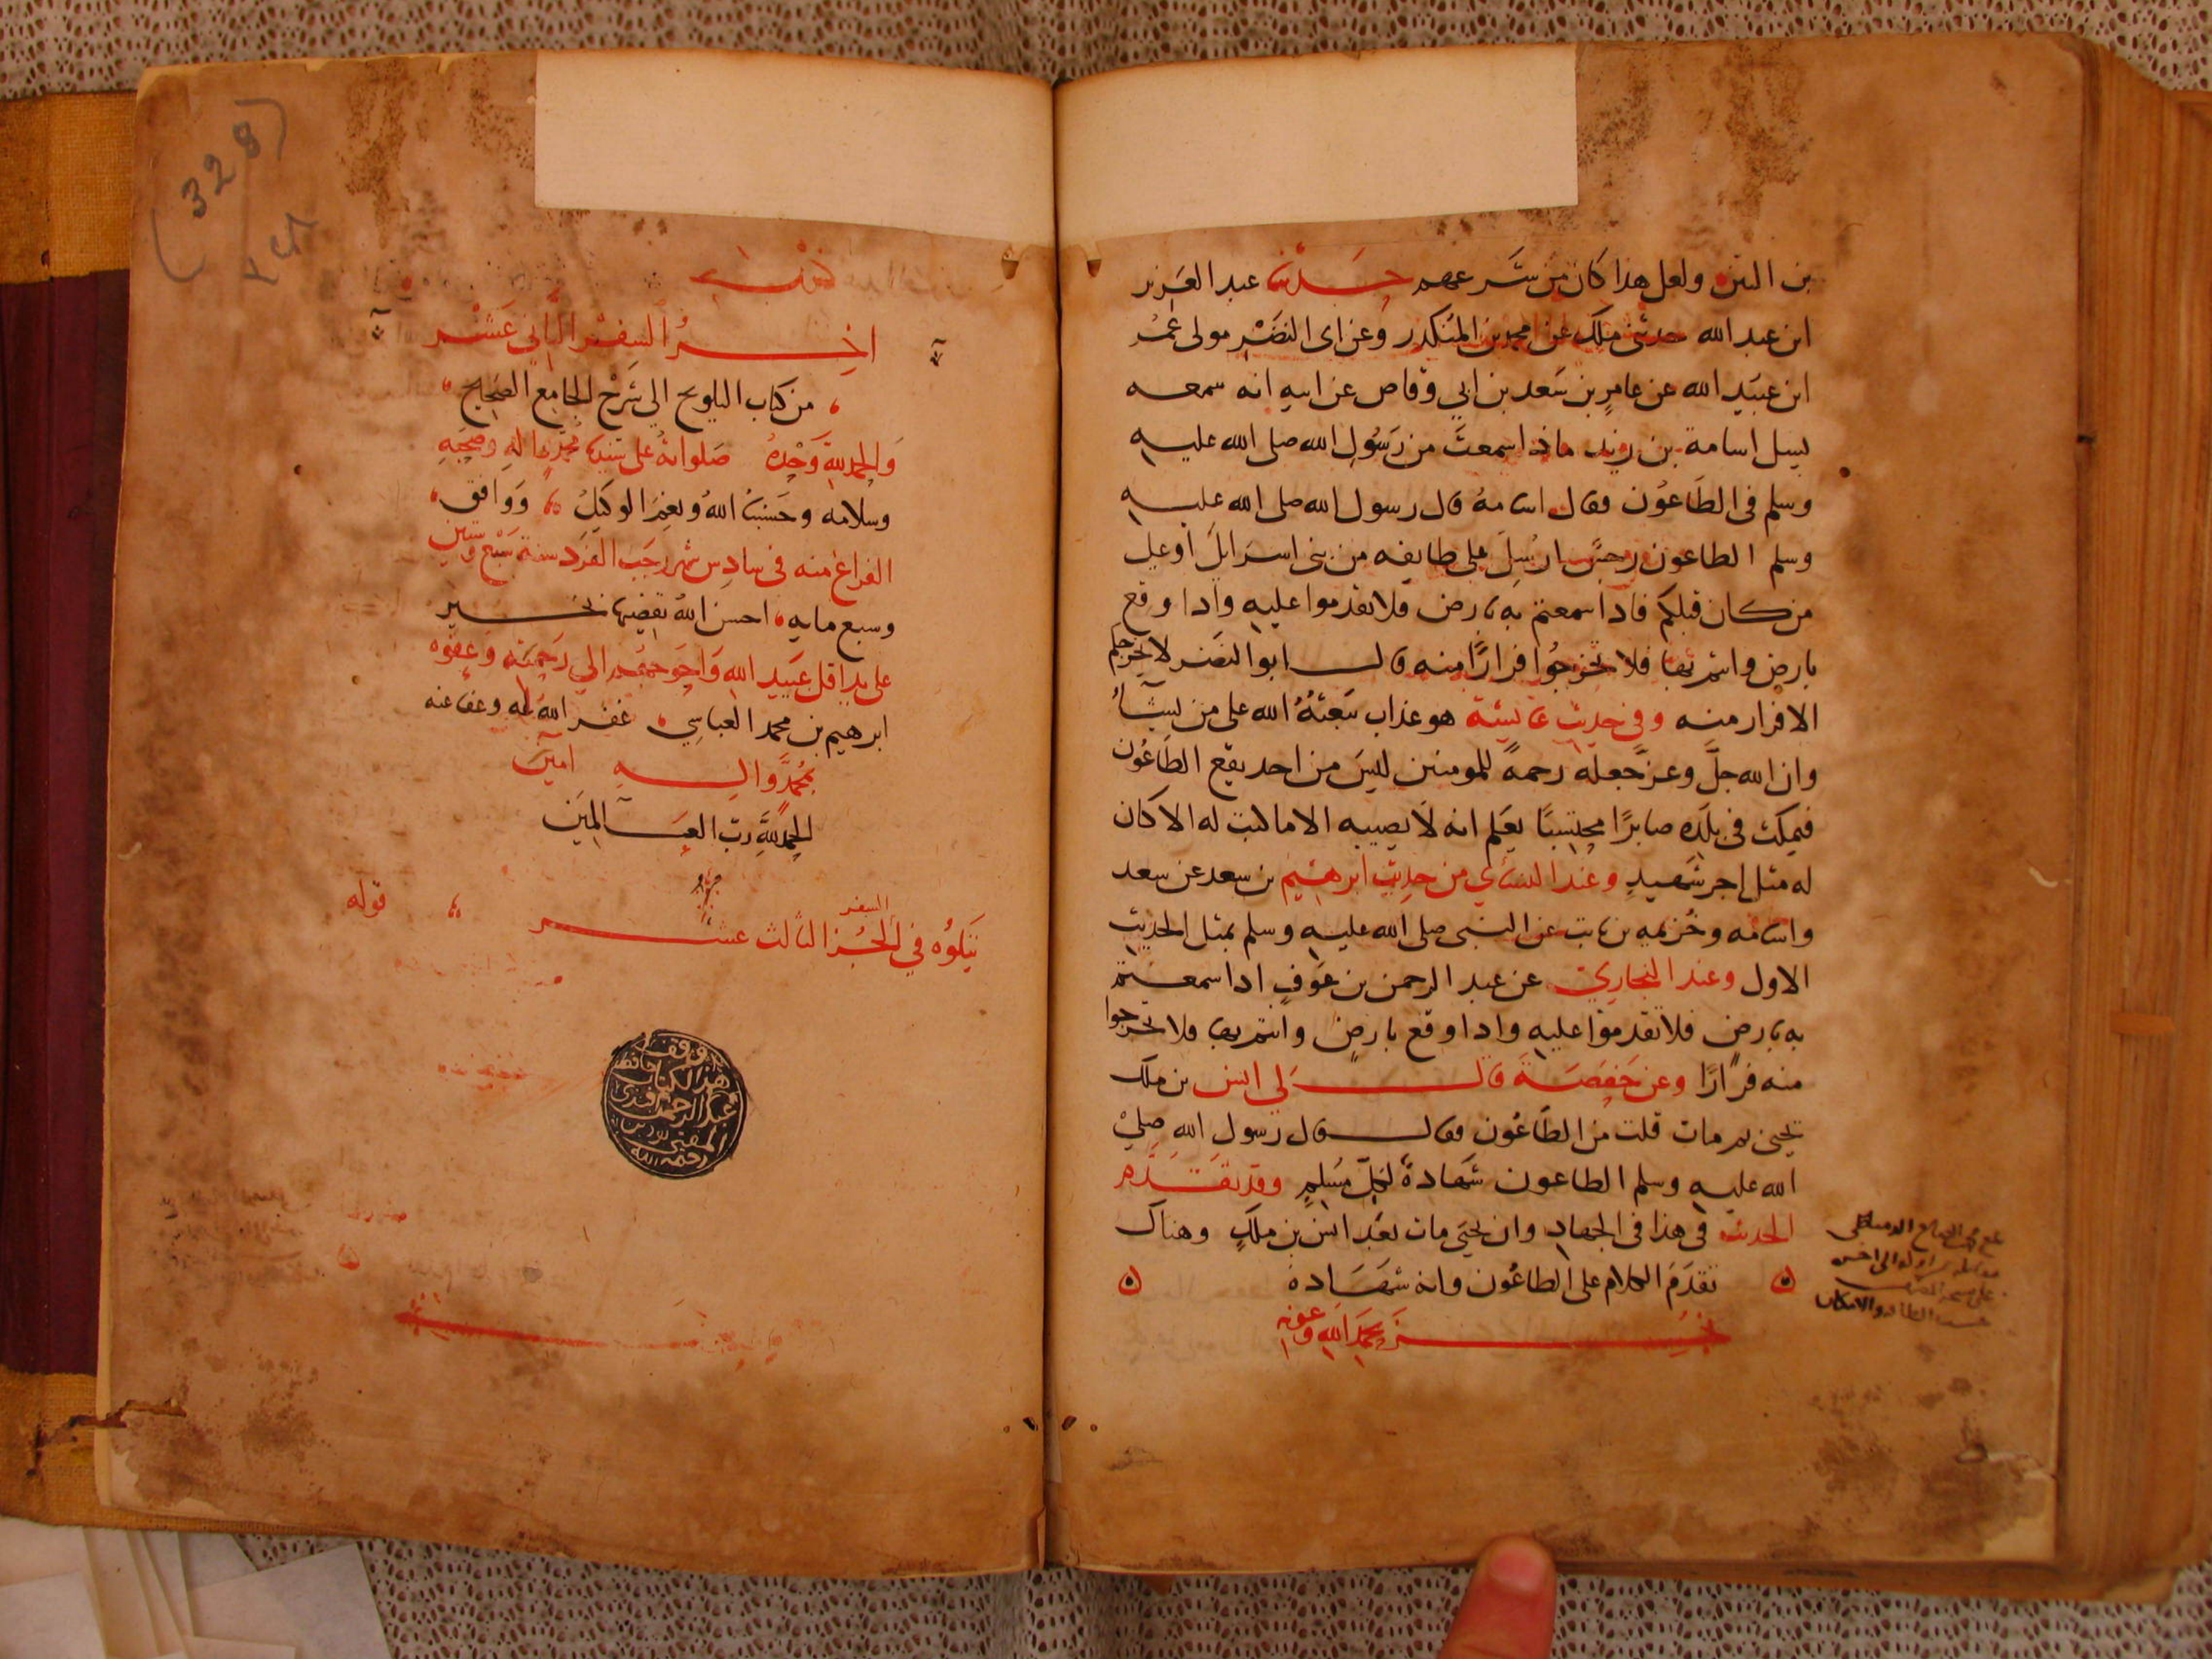 بن التين ولعل هذا كان من ستر عهم حدثنا عبد العزيز
ابن عبد الله حدثني ملك عن محمد بن المنكدر وعن ابى النضر مولى عمر
ابن عبيد الله عن عامر بن سعد بن ابي وقاص عن ابيه انه سمعه
يسيل اسامة بن زيد ماذا سمعت من رسول الله صلى الله عليه
وسلم فى الطاعون فقال اسامة قال رسول الله صلى الله عليه
وسلم الطاعون رجس ارسل على طايفه من بنى اسرايل او على
من كان قبلكم فاذا سمعتم به بارض فلا تقدموا عليه واذا وقع
بارض وانتم بها فلا تخرجوا فرارا منه قال ابو النضر لا يخرجكم
الا فرار منه وفي حديث عايشة هو عذاب يبعثه الله على من يشاء
وان الله جل وعز جعله رحمة للمومنين ليس من احد يقع الطاعون
فيمكث فى بلده صابرا محتسبا يعلم انه لا يصيبه الا ما كتب له الا كان
له مثل اجر شهيد وعند النساي من حديث ابرهيم بن سعد عن سعد
واسامه وخزيمه بن ثابت عن النبى صلى الله عليه وسلم بمثل الحديث
الاول وعند البخاري عن عبد الرحمن بن عوف اذا سمعتم
به بارض فلا تقدموا عليه واذا وقع بارض وانتم بها فلا تخرجوا
منه فرارا وعن حفصة قال لي انس بن ملك
يحيى بم مات قلت من الطاعون فقال قال رسول الله صلى
الله عليه وسلم الطاعون شهادة لكل مسلم وقد تقدم
الحديث فى هذا فى الجهاد وان يحيى مات بعد انس بن ملك وهناك
تقدم الكلام على الطاعون وانه شهادة
نجز بحمد الله وعونه
اخر السفر الثاني عشر
من كتاب التلويح الي شرح الجامع الصحيح
والحمد لله وحده صلواته على سيدنا محمد واله وصحبه
وسلامه وحسبنا الله ونعم الوكيل ووافق
الفراغ منه فى سادس شهر رجب الفرد سنة سبع وستين
وسبع مايه احسن الله تقضيها بخير
على يد اقل عبيد الله واحوجهم الي رحمته وعفوه
ابرهيم بن محمد العباسي غفر الله له وعفا عنه
بمحمد واله امين
الحمد لله رب العالمين
يتلوه في الجزا الثالث عشر قوله
السفر
وقف
هذا الكتاب حافظ
عبد الرحمن افندى
المفتى
رحمه الله
(329)